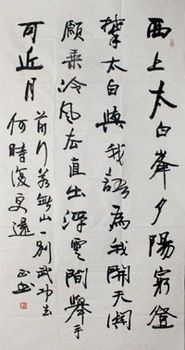 西上太白峯夕陽窮登
攀太白與我語為我開天關
願乘冷風去直出浮雲間舉手
可近月
前行若無山一別武功去
何時復更還